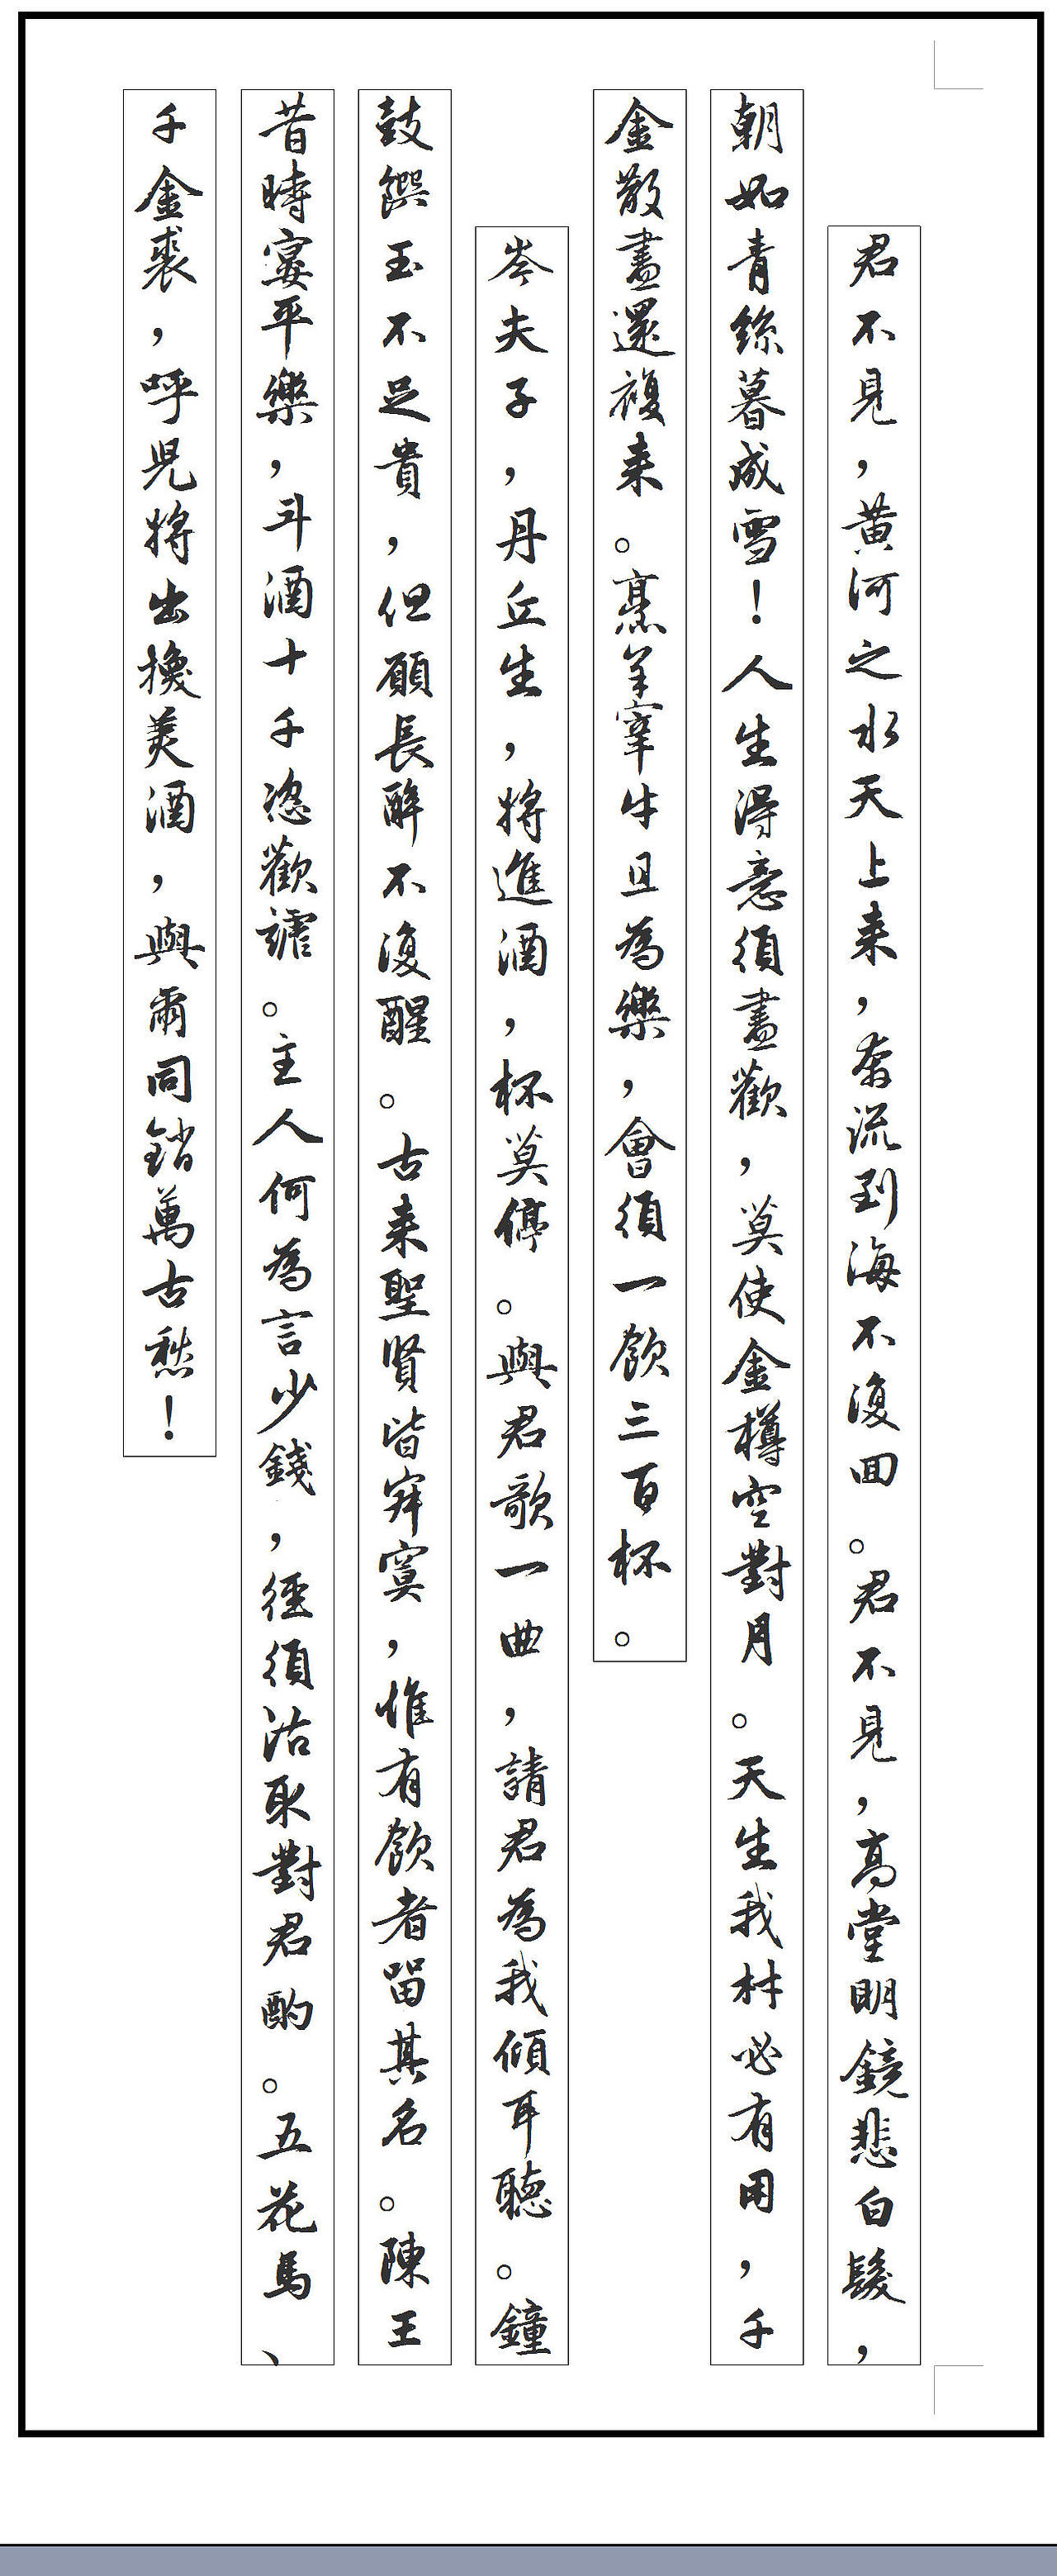 君不見，黃河之水天上来，奔流到海不復回。君不見，高堂明鏡悲白髮，
朝如青絲暮成雪！人生得意須盡歡，莫使金樽空對月。天生我材必有用，千
金散盡還複来。烹羊宰牛且為樂，會須一飲三百杯。
岑夫子，丹丘生，將進酒，杯莫停。與君歌一曲，請君為我傾耳聽。鐘
鼓饌玉不足貴，但願長醉不復醒。古来聖賢皆寂寞，惟有飲者留其名。陳王
昔時宴平樂，斗酒十千恣歡謔。主人何為言少錢，徑須沽取對君酌。五花馬、
千金裘，呼兒將出換美酒，與爾同銷萬古愁！